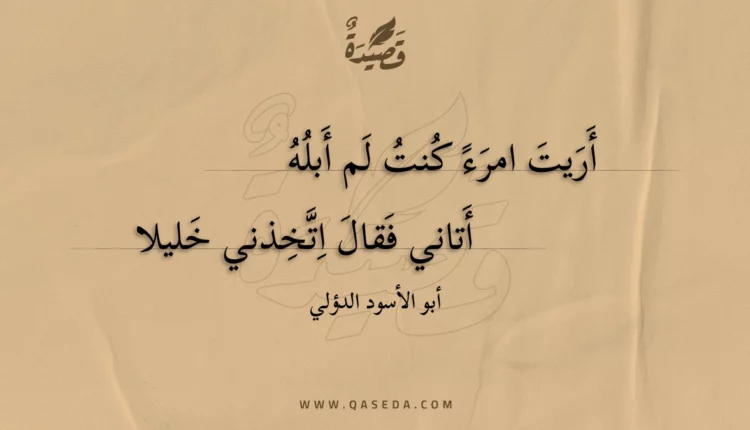 قَصِيْدَةٌ
أَرَيتَ امرَءً كُنتُ لَم أَبلُهُ
أَتاني فَقالَ اِتَّخِذني خَليلا
أبو الأسود الدؤلي
WWW.QASEDA.COM